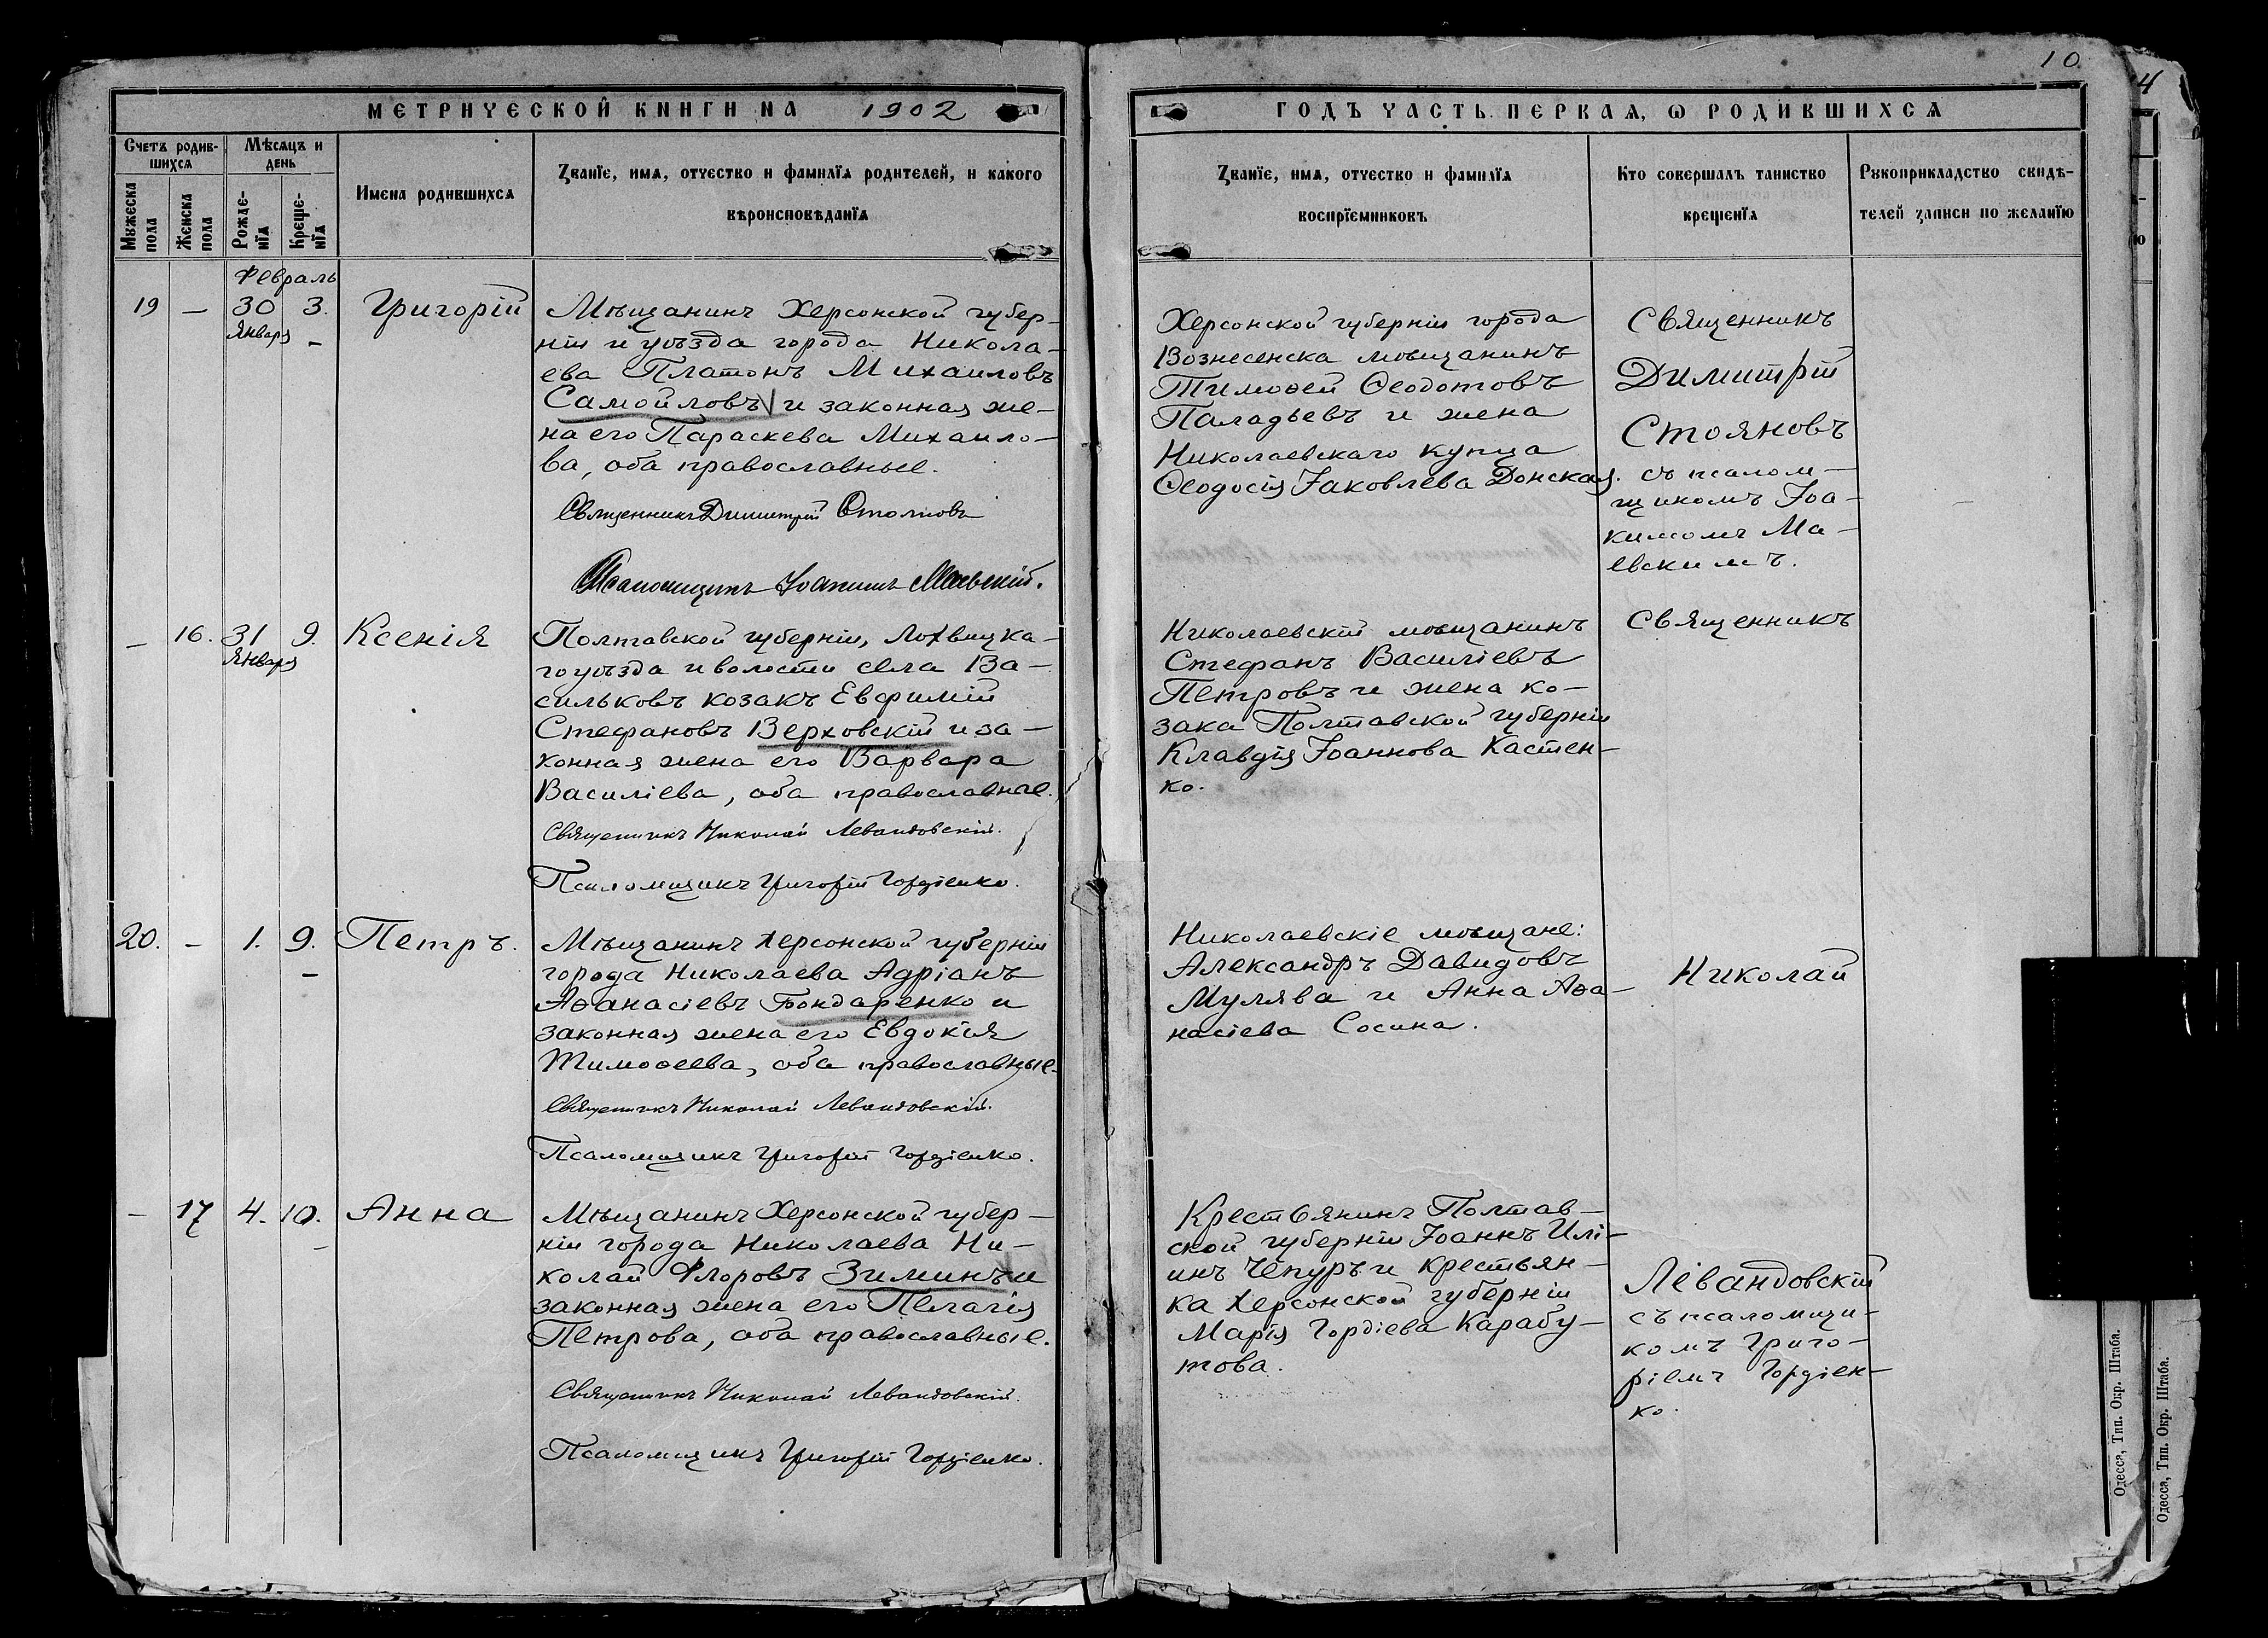 10
4
МЕТРИЧЕСКОЙ КНИГИ НА 1902
ГОДЪ ЧАСТЬ ПЕРВАЯ, Ѡ РОДИВШИХСЯ
Счетъ родив-
шихся
Мѣсяцъ и
день
Мужеска
пола
Женска
пола
Рожде-
нїя
Креще-
нїя
Имена родившихся
Званїе, имя, отчество и фамилїя родителей, и какого
вѣроисповѣданїя
Званїе, имя, отчество и фамилїя
воспрїемниковъ
Кто совершалъ таинство
крещенїя
Рукоприкладство свидѣ-
телей записи по желанїю
Февраль
19 — 30 3. Григорій
Января
Мѣщанинъ Херсонской губер-
ніи и уѣзда города Никола-
ева Платонъ Михаиловъ
Самойловъ и законная же-
на его Параскева Михаило-
ва, оба православные.
Священникъ Димитрій Стояновъ
Псаломщикъ Іоакимъ Маевскій.
Херсонской губерніи города
Вознесенска мѣщанинъ
Тимоѳей Ѳеодотовъ
Паладьевъ и жена
Николаевскаго купца
Ѳеодосія Іаковлева Донская.
Священникъ
Димитрій
Стояновъ
съ псалом-
щикомъ Іоа-
кимомъ Ма-
евскимъ.
— 16. 31 9. Ксенія
Января
Полтавской губерніи, Лохвицка-
го уѣзда и волости села Ва-
сильковъ козакъ Евфимій
Стефановъ Верховскій и за-
конная жена его Варвара
Василіева, оба православные.
Священникъ Николай Левандовскій.
Псаломщикъ Григорій Гордіенко.
Николаевскій мѣщанинъ
Стефанъ Василіевъ
Петровъ и жена ко-
зака Полтавской губерніи
Клавдія Іоаннова Кастен-
ко.
Священникъ
20. — 1. 9. Петръ.
Мѣщанинъ Херсонской губерніи
города Николаева Адріанъ
Аѳанасіевъ Бондаренко и
законная жена его Евдокія
Тимоѳеева, оба православные.
Священникъ Николай Левандовскій.
Псаломщикъ Григорій Гордіенко.
Николаевскіе мѣщане:
Александръ Давидовъ
Мулява и Анна Аѳа-
насіева Сосина.
Николай
— 17 4. 10. Анна
Мѣщанинъ Херсонской губер-
ніи города Николаева Ни-
колай Флоровъ Зиминъ и
законная жена его Пелагія
Петрова, оба православные.
Священникъ Николай Левандовскій.
Псаломщикъ Григорій Гордіенко.
Крестьянинъ Полтав-
ской губерніи Іоаннъ Илі-
инъ Чепуръ и крестьян-
ка Херсонской губерніи
Марія Гордіева Карабу-
това.
Левандовскій
съ псаломщи-
комъ Григо-
ріемъ Гордіен-
ко.
Одесса, Тип. Окр. Штаба.
Одесса, Тип. Окр. Штаба.